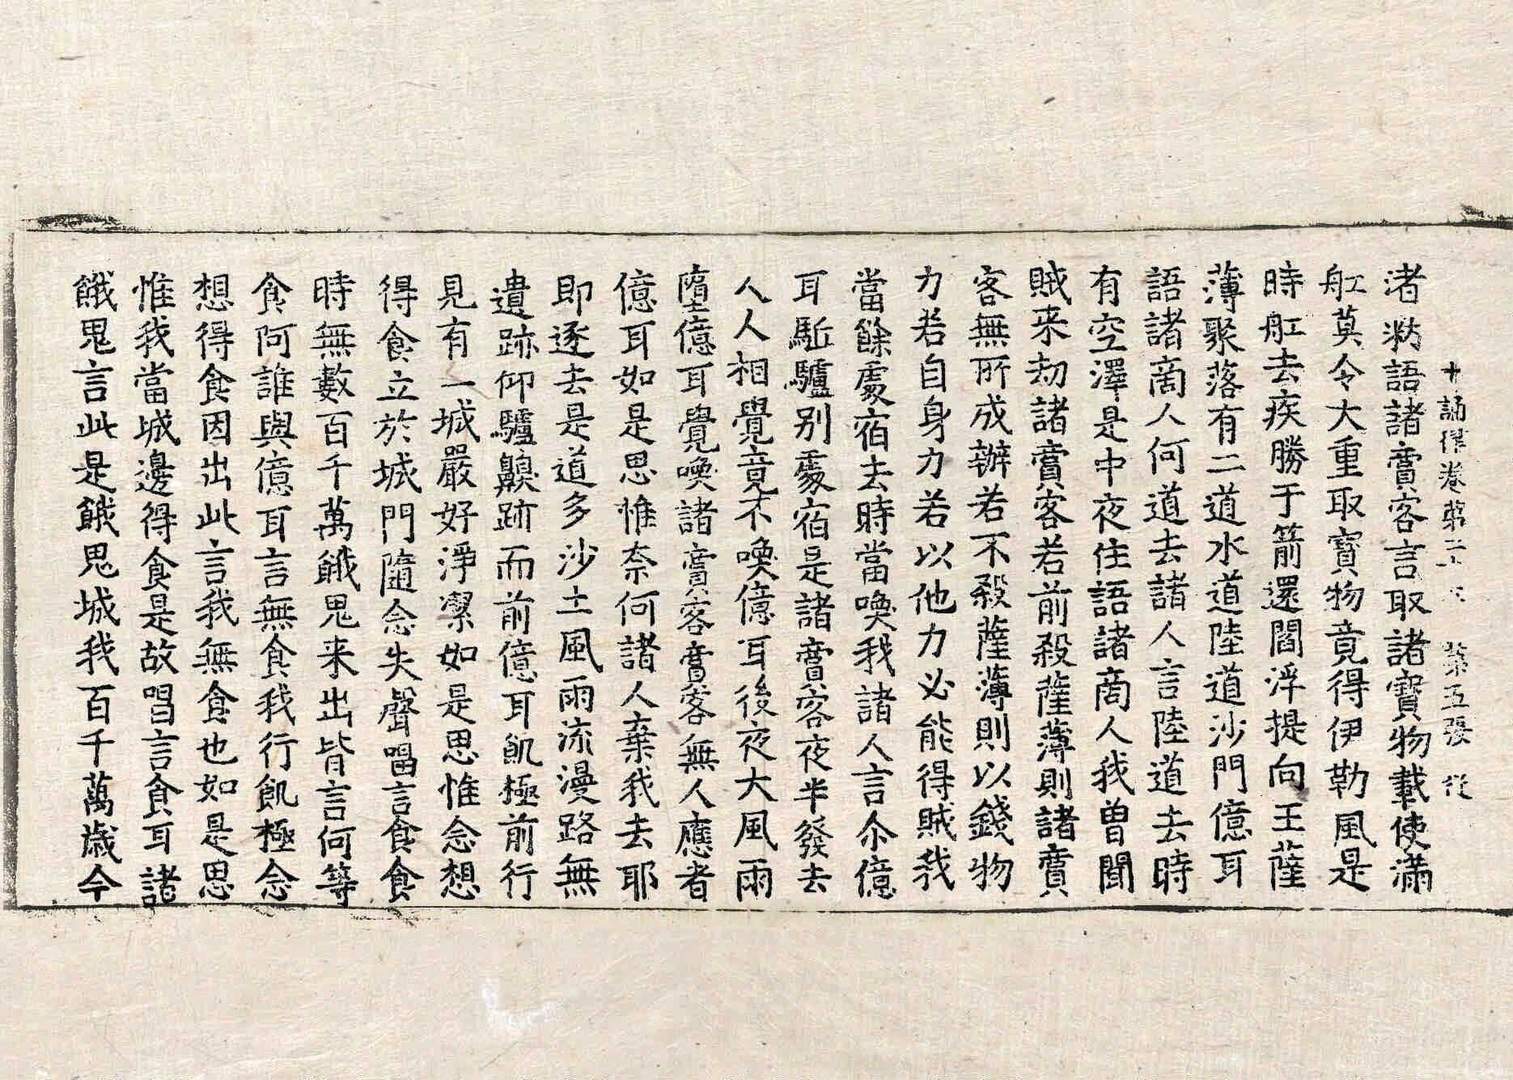 十誦律卷第二十 第五張 從
渚粆語諸賈客言取諸寶物載使滿
舡莫令大重取寶物竟得伊勒風是
時舡去疾勝于箭還閻浮提向王薩
薄聚落有二道水道陸道沙門億耳
語諸商人何道去諸人言陸道去時
有空澤是中夜住語諸商人我曽聞
賊来劫諸賈客若前殺薩薄則諸賈
客無所成辦若不殺薩薄則以錢物
力若自身力若以他力必能得賊我
當餘處宿去時當喚我諸人言尒億
耳駈驢別處宿是諸賈客夜半發去
人人相覺竟不喚億耳後夜大風雨
墮億耳覺喚諸賈客賈客無人應者
億耳如是思惟奈何諸人棄我去耶
即逐去是道多沙土風雨流漫路無
遺跡仰驢齅跡而前億耳飢極前行
見有一城嚴好淨潔如是思惟念想
得食立於城門隨念失聲唱言食食
時無數百千萬餓鬼来出皆言何等
食阿誰與億耳言無食我行飢極念
想得食因出此言我無食也如是思
惟我當城邊得食是故唱言食耳諸
餓鬼言此是餓鬼城我百千萬歲今